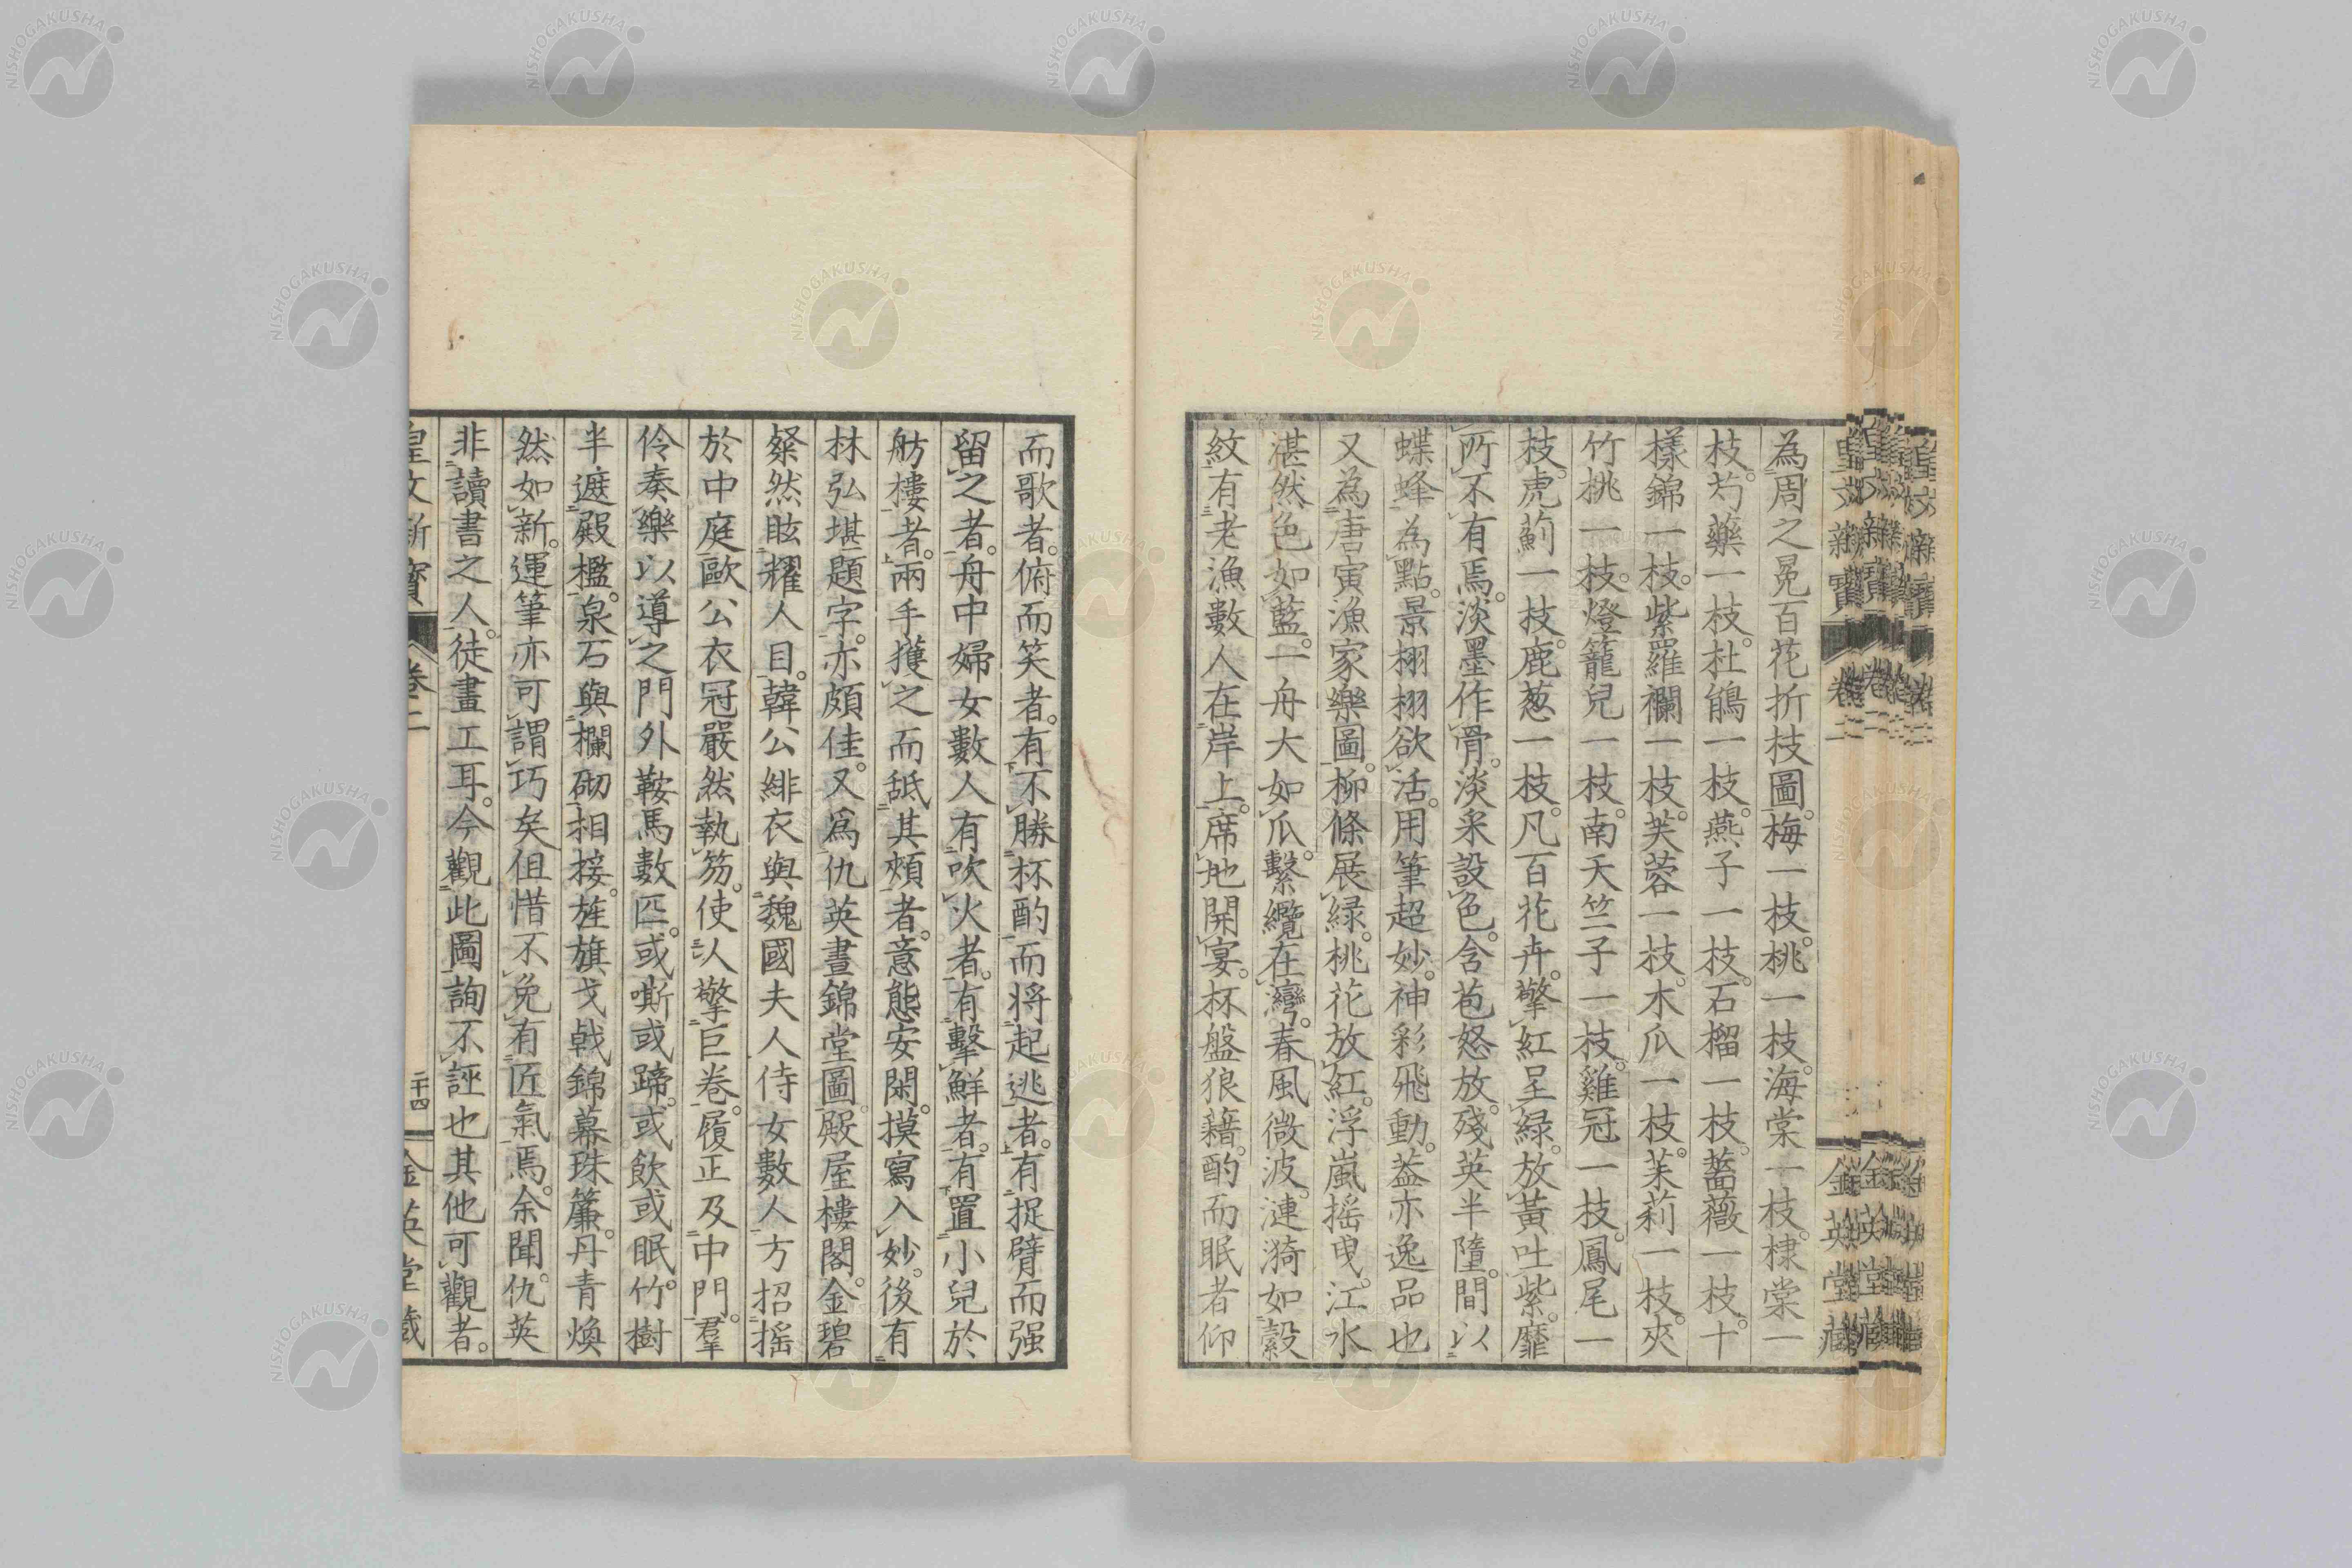 為周之冕百花折枝圖。梅一枝。桃一枝。海棠一枝。棣棠一
枝。芍藥一枝。杜鵑一枝。燕子一枝。石榴一枝。薔薇一枝。十
樣錦一枝。紫羅襴一枝。芙蓉一枝。木瓜一枝。茉莉一枝。夾
竹桃一枝。燈籠兒一枝。南天竺子一枝。雞冠一枝。鳳尾一
枝。虎薊一枝。鹿葱一枝。凡百花卉。擎紅呈緑。放黃吐紫。靡
所不有焉。淡墨作骨。淡采設色。含苞怒放。殘英半隨。間以
蝶蜂為點。景栩栩欲活。用筆超妙。神彩飛動。葢亦逸品也
又為唐寅漁家樂圖。柳條展緑。桃花放紅。浮嵐搖曳。江水
湛然色如藍。一舟大如瓜。繫纜在灣。春風微波。漣漪如縠
紋有老漁數人在岸上。席地開宴。杯盤狼藉。酌而眠者仰
而歌者。俯而笑者。有不勝杯酌而将起逃者。有捉臂而强
留之者。舟中婦女數人有吹火者。有擊鮮者。有置小兒於
舫樓者。兩手擭之而舐其頰者。意態安閑。摸寫入妙。後有
林弘堪題字。亦頗佳。又為仇英晝錦堂圖。殿屋樓閣。金碧
粲然眩耀人目。韓公緋衣與魏國夫人侍女數人方招搖
於中庭歐公衣冠嚴然執笏。使以擎巨卷。履正及中門。羣
伶奏樂以導之門外鞍馬數匹。或嘶或蹄。或飲或眠。竹樹
半遮殿檻。泉石與欄砌相接。旌旗戈戟錦幕珠簾。丹青煥
然如新。運筆亦可謂巧矣但惜不免有匠氣焉。余聞。仇英
非讀書之人。徒畫工耳。今觀此圖詢不誣也其他可觀者。
皇文新寶 卷二 二十四 金英堂藏